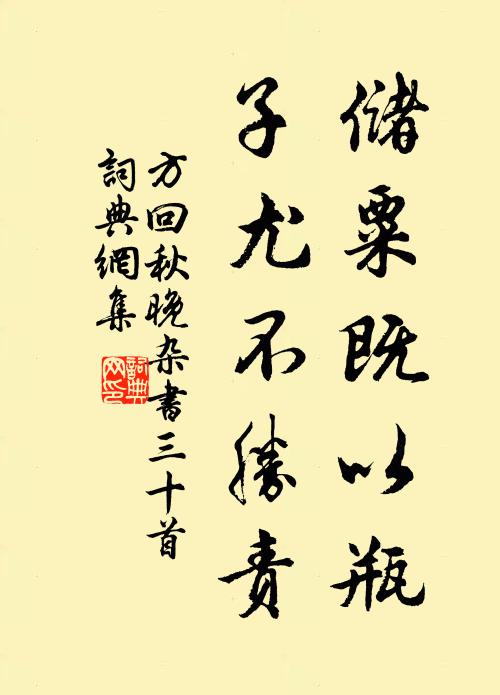 儲粟既以瓶
子尤不勝責
方回秋晚杂書三十首
詞典網集
詞典網印